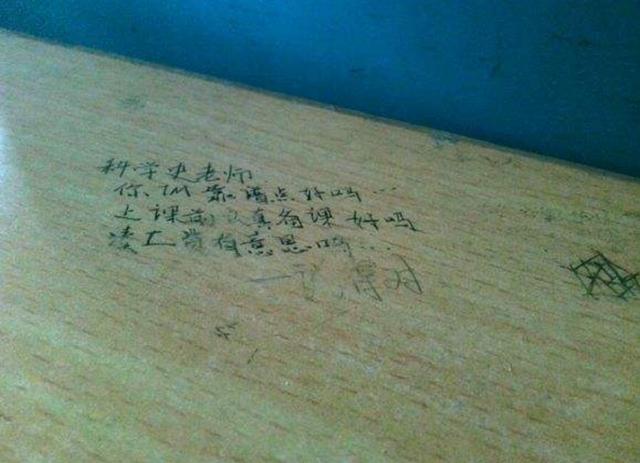 科学史老师
你们靠谱点好吗…
上课前认真备课好吗
凑工资有意思吗…